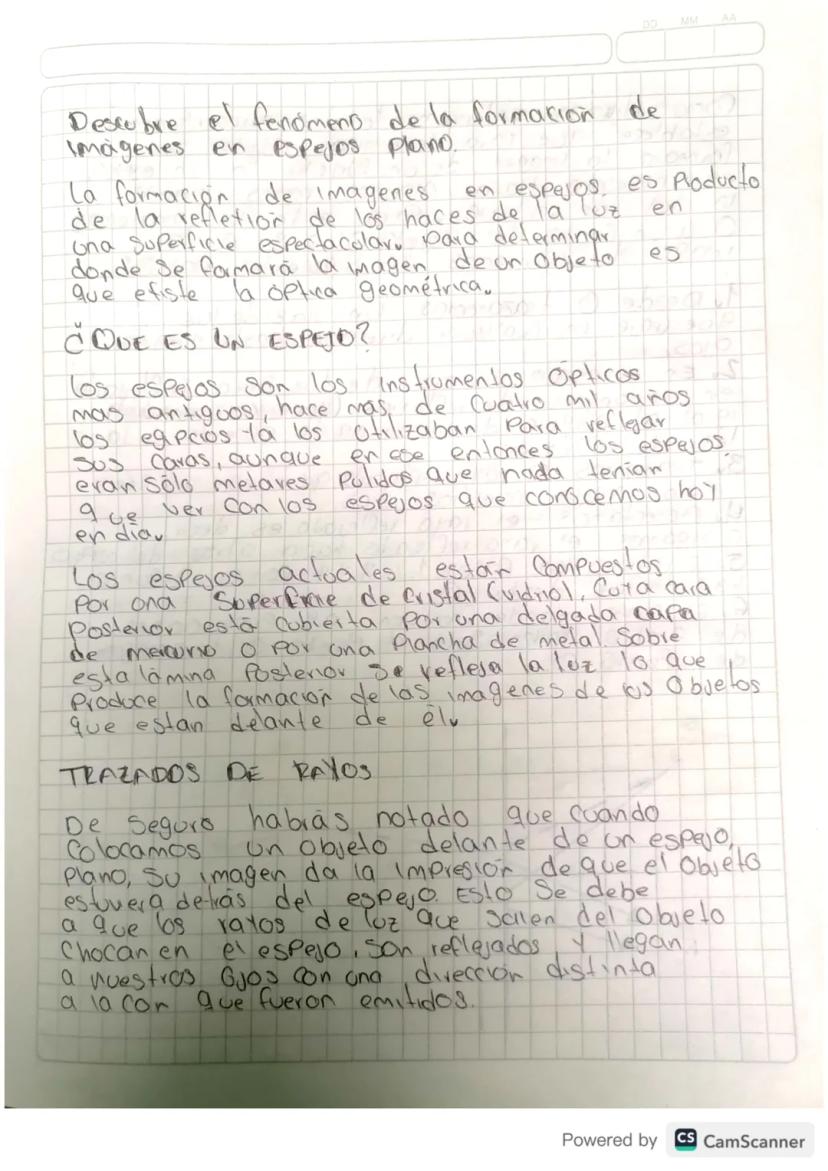 DD MM AA
Descubre el fenómeno de la formacion de
imágenes en espejos plano.
La formación de imagenes en espejos. es Producto
de la reflexión de los haces de la luz en
una superficie espectacular. Para determinar
donde se formará la imagen de un objeto es
que existe la óptica geométrica.
¿QUE ES UN ESPEJO?
Los espejos son los instrumentos Ópticos
mas antiguos, hace mas de cuatro mil años
los egipcios ya los utilizaban para reflejar
sus caras, aunque en ese entonces los espejos
eran sólo metares pulidos que nada tenian
que ver con los espejos que conocemos hoy
en día.
Los espejos actuales están compuestos
Por una superficie de cristal (vidrio), cuya cara
Posterior está cubierta por una delgada capa
de mercurio o por una plancha de metal. Sobre
esta lámina Posterior se refleja la luz lo que
Produce la formación de las imagenes de los objetos
que estan delante de él.
TRAZADOS DE RAYOS
De seguro habrás notado que cuando
colocamos un objeto delante de un espejo,
plano, su imagen da la impresión de que el objeto
estuvera detrás del espejo. Esto se debe
a que los rayos de luz que salen del objeto
chocan en el espejo, son reflejados y llegan
a nuestros ojos con una dirección distinta
a la con que fueron emitidos.
Powered by CS CamScanner